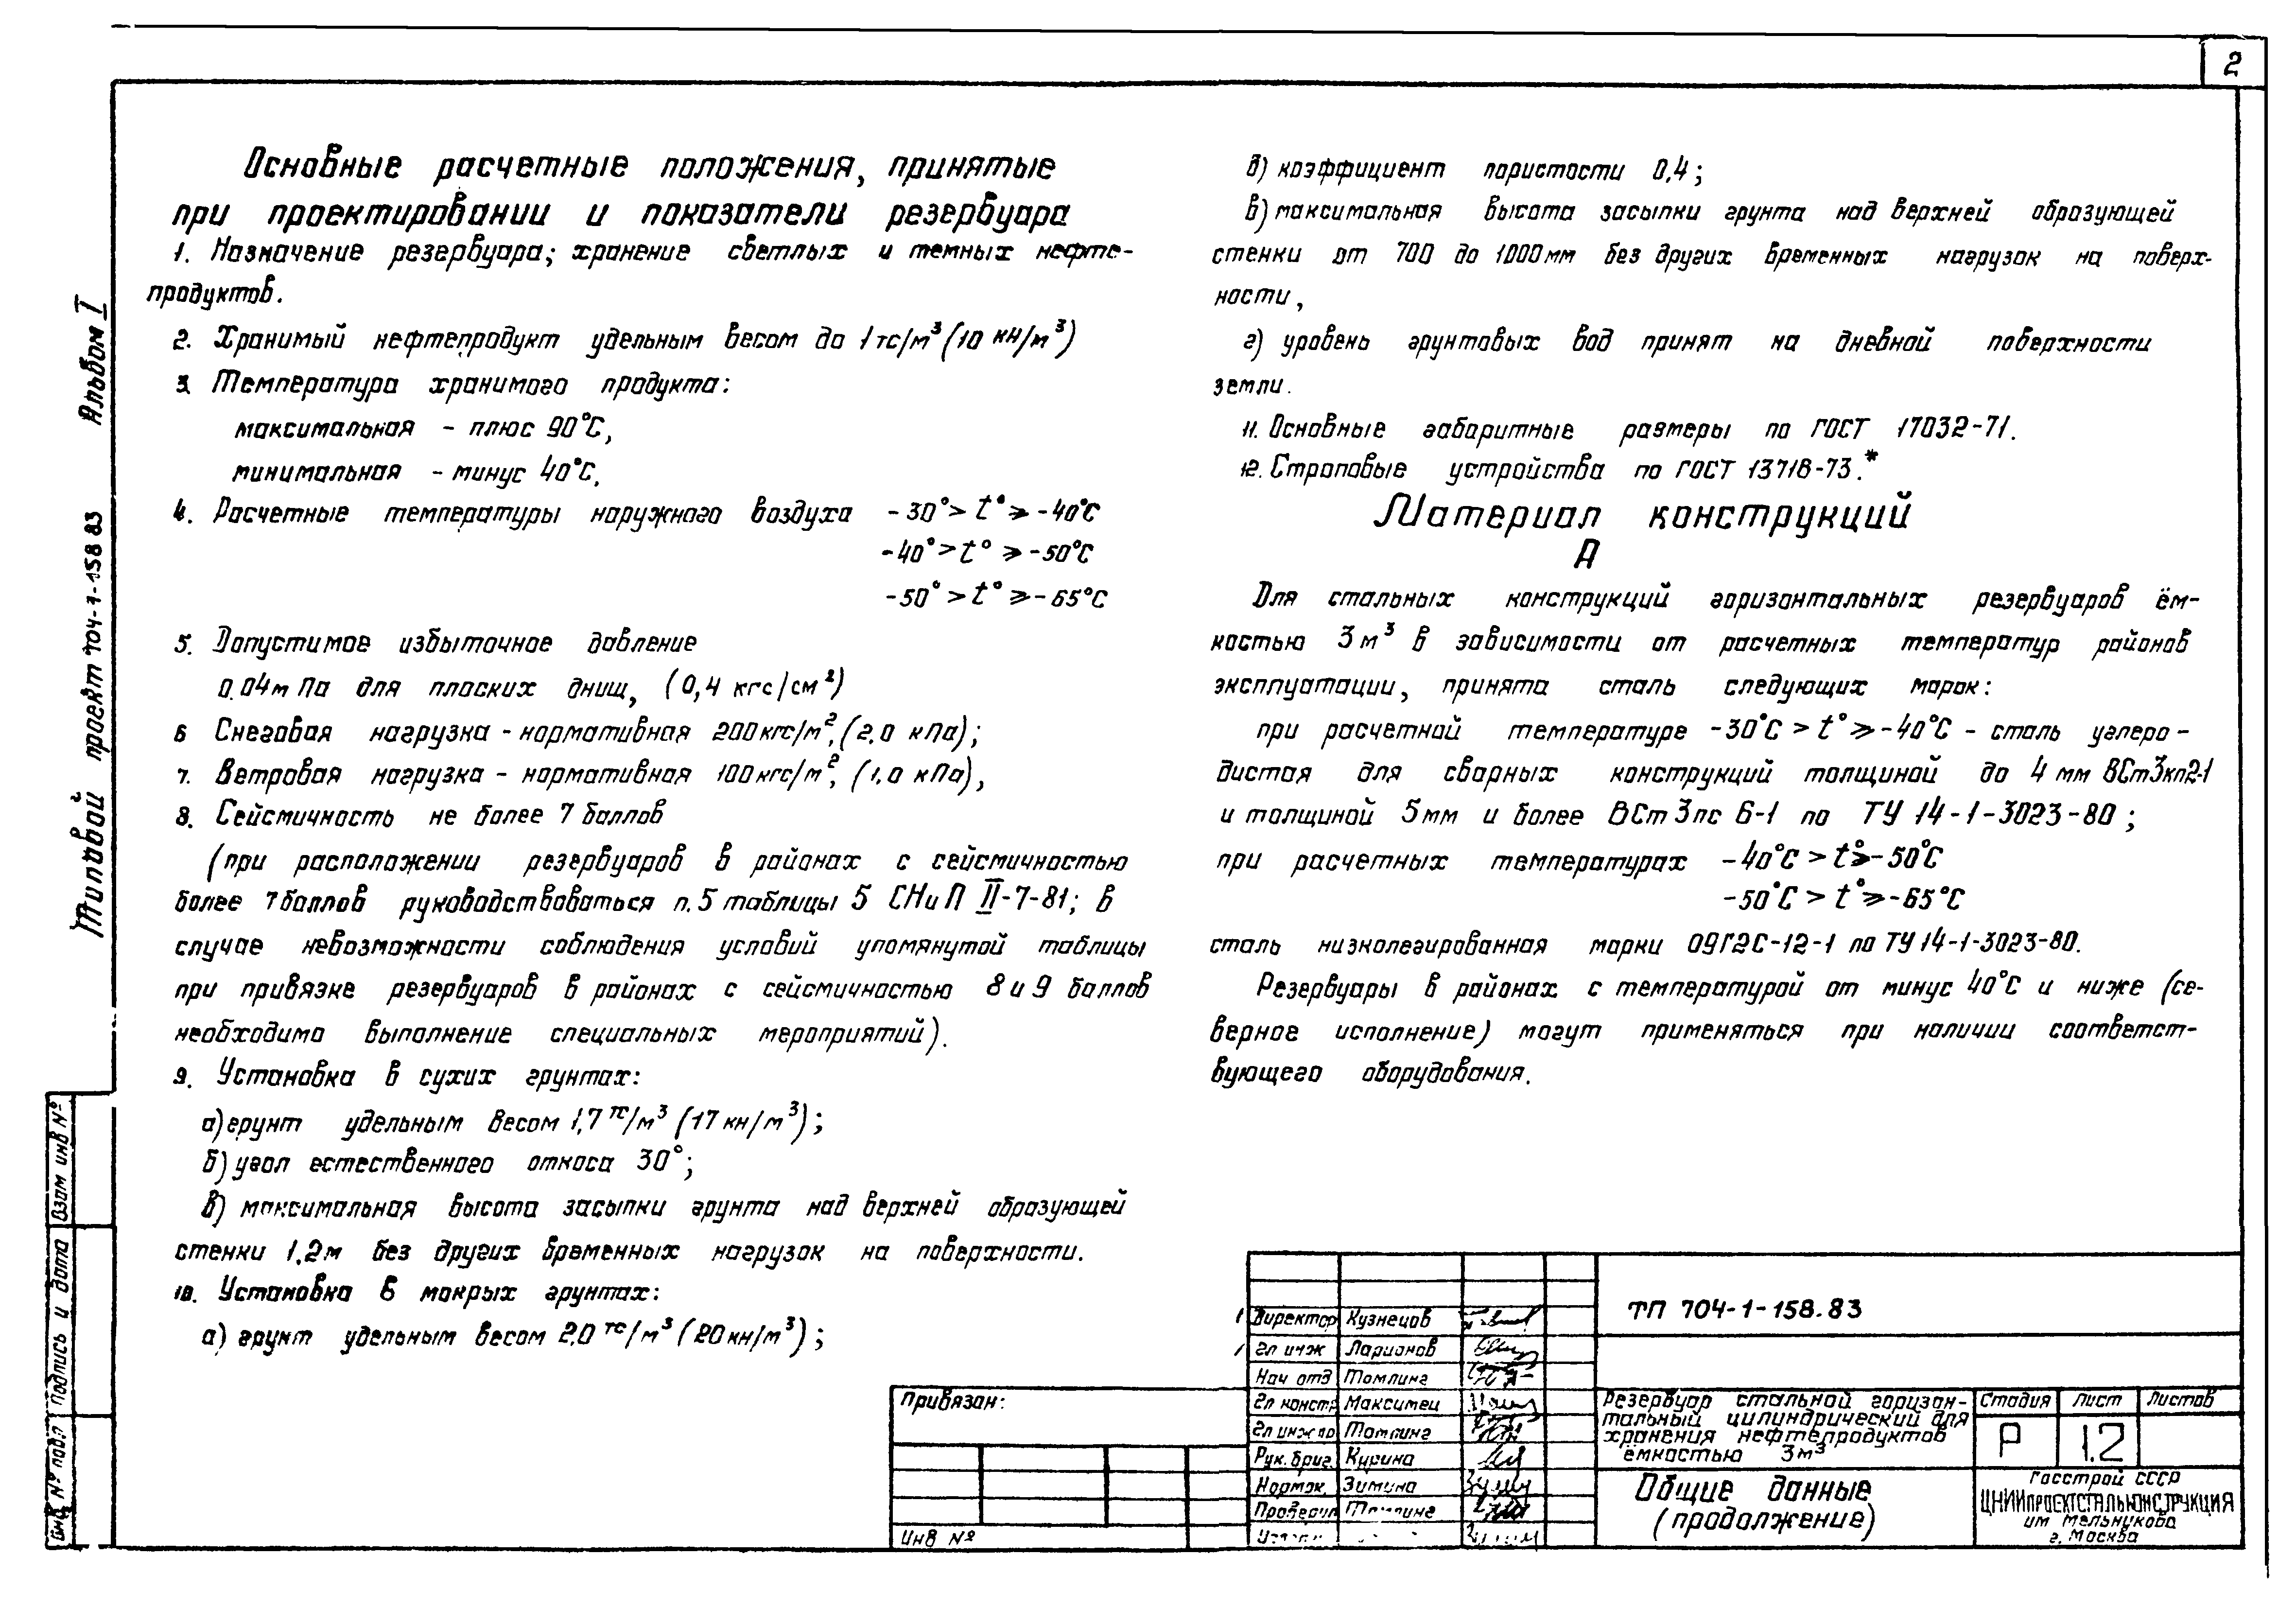 2
Основные расчетные положения, принятые
при проектировании и показатели резервуара
1. Назначение резервуара; хранение светлых и темных нефте-
продуктов.
2. Хранимый нефтепродукт удельным весом до 1 тс/м³ (10 кн/м³)
3. Температура хранимого продукта:
максимальная - плюс 90°С,
минимальная - минус 40°С,
4. Расчетные температуры наружного воздуха -30°> t° ⩾ -40°С
-40°> t° ⩾ -50°С
-50° > t° ⩾ -65°С
5. Допустимое избыточное давление
0.04 мПа для плоских днищ, (0,4 кгс/см²)
6 Снеговая нагрузка - нормативная 200 кгс/м², (2,0 кПа);
7. Ветровая нагрузка - нормативная 100 кгс/м², (1,0 кПа),
8. Сейсмичность не более 7 баллов
(при расположении резервуаров в районах с сейсмичностью
более 7 баллов руководствоваться п.5 таблицы 5 СНиП II-7-81; в
случае невозможности соблюдения условий упомянутой таблицы
при привязке резервуаров в районах с сейсмичностью 8 и 9 баллов
необходимо выполнение специальных мероприятий).
9. Установка в сухих грунтах:
а) грунт удельным весом 1,7 тс/м³ (17 кн/м³);
б) угол естественного откоса 30°;
в) максимальная высота засыпки грунта над верхней образующей
стенки 1,2м без других временных нагрузок на поверхности.
10. Установка в мокрых грунтах:
а) грунт удельным весом 2,0 тс/м³ (20 кн/м³);
б) коэффициент пористости 0,4;
в) максимальная высота засыпки грунта над верхней образующей
стенки от 700 до 1000мм без других временных нагрузок на поверх-
ности,
г) уровень грунтовых вод принят на дневной поверхности
земли.
11. Основные габаритные размеры по ГОСТ 17032-71.
12. Строповые устройства по ГОСТ 13716-73.*
Материал конструкций
А
Для стальных конструкций горизонтальных резервуаров ём-
костью 3м³ в зависимости от расчетных температур районов
эксплуатации, принята сталь следующих марок:
при расчетной температуре -30°С > t° ⩾ -40°С - сталь углеро-
дистая для сварных конструкций толщиной до 4 мм ВСт3кп2-1
и толщиной 5мм и более ВСт 3пс 6-1 по ТУ 14-1-3023-80;
при расчетных температурах -40°С > t° ⩾ -50°С
-50°С > t° ⩾ -65°С
сталь низколегированная марки 09Г2С-12-1 по ТУ 14-1-3023-80.
Резервуары в районах с температурой от минус 40°С и ниже (се-
верное исполнение) могут применяться при наличии соответст-
вующего оборудования.
Альбом I
Типовой проект 704-1-158 83
Взам инв №
Подпись и дата
Инв № подл
Привязан:
Инв №
Директор Кузнецов
Гл инж Ларионов
Нач отд Томлинг
Гл констр Максимец
Гл инж пр Томлинг
Рук. бриг. Курина
Нормок. Зимина
Проверил Томлинг
ТП 704-1-158.83
Резервуар стальной горизон-
тальный цилиндрический для
хранения нефтепродуктов
ёмкостью 3м³
Стадия Лист Листов
Р 1.2
Общие данные
(продолжение)
Госстрой СССР
ЦНИИПРОЕКТСТАЛЬКОНСТРУКЦИЯ
им Мельникова
г. Москва